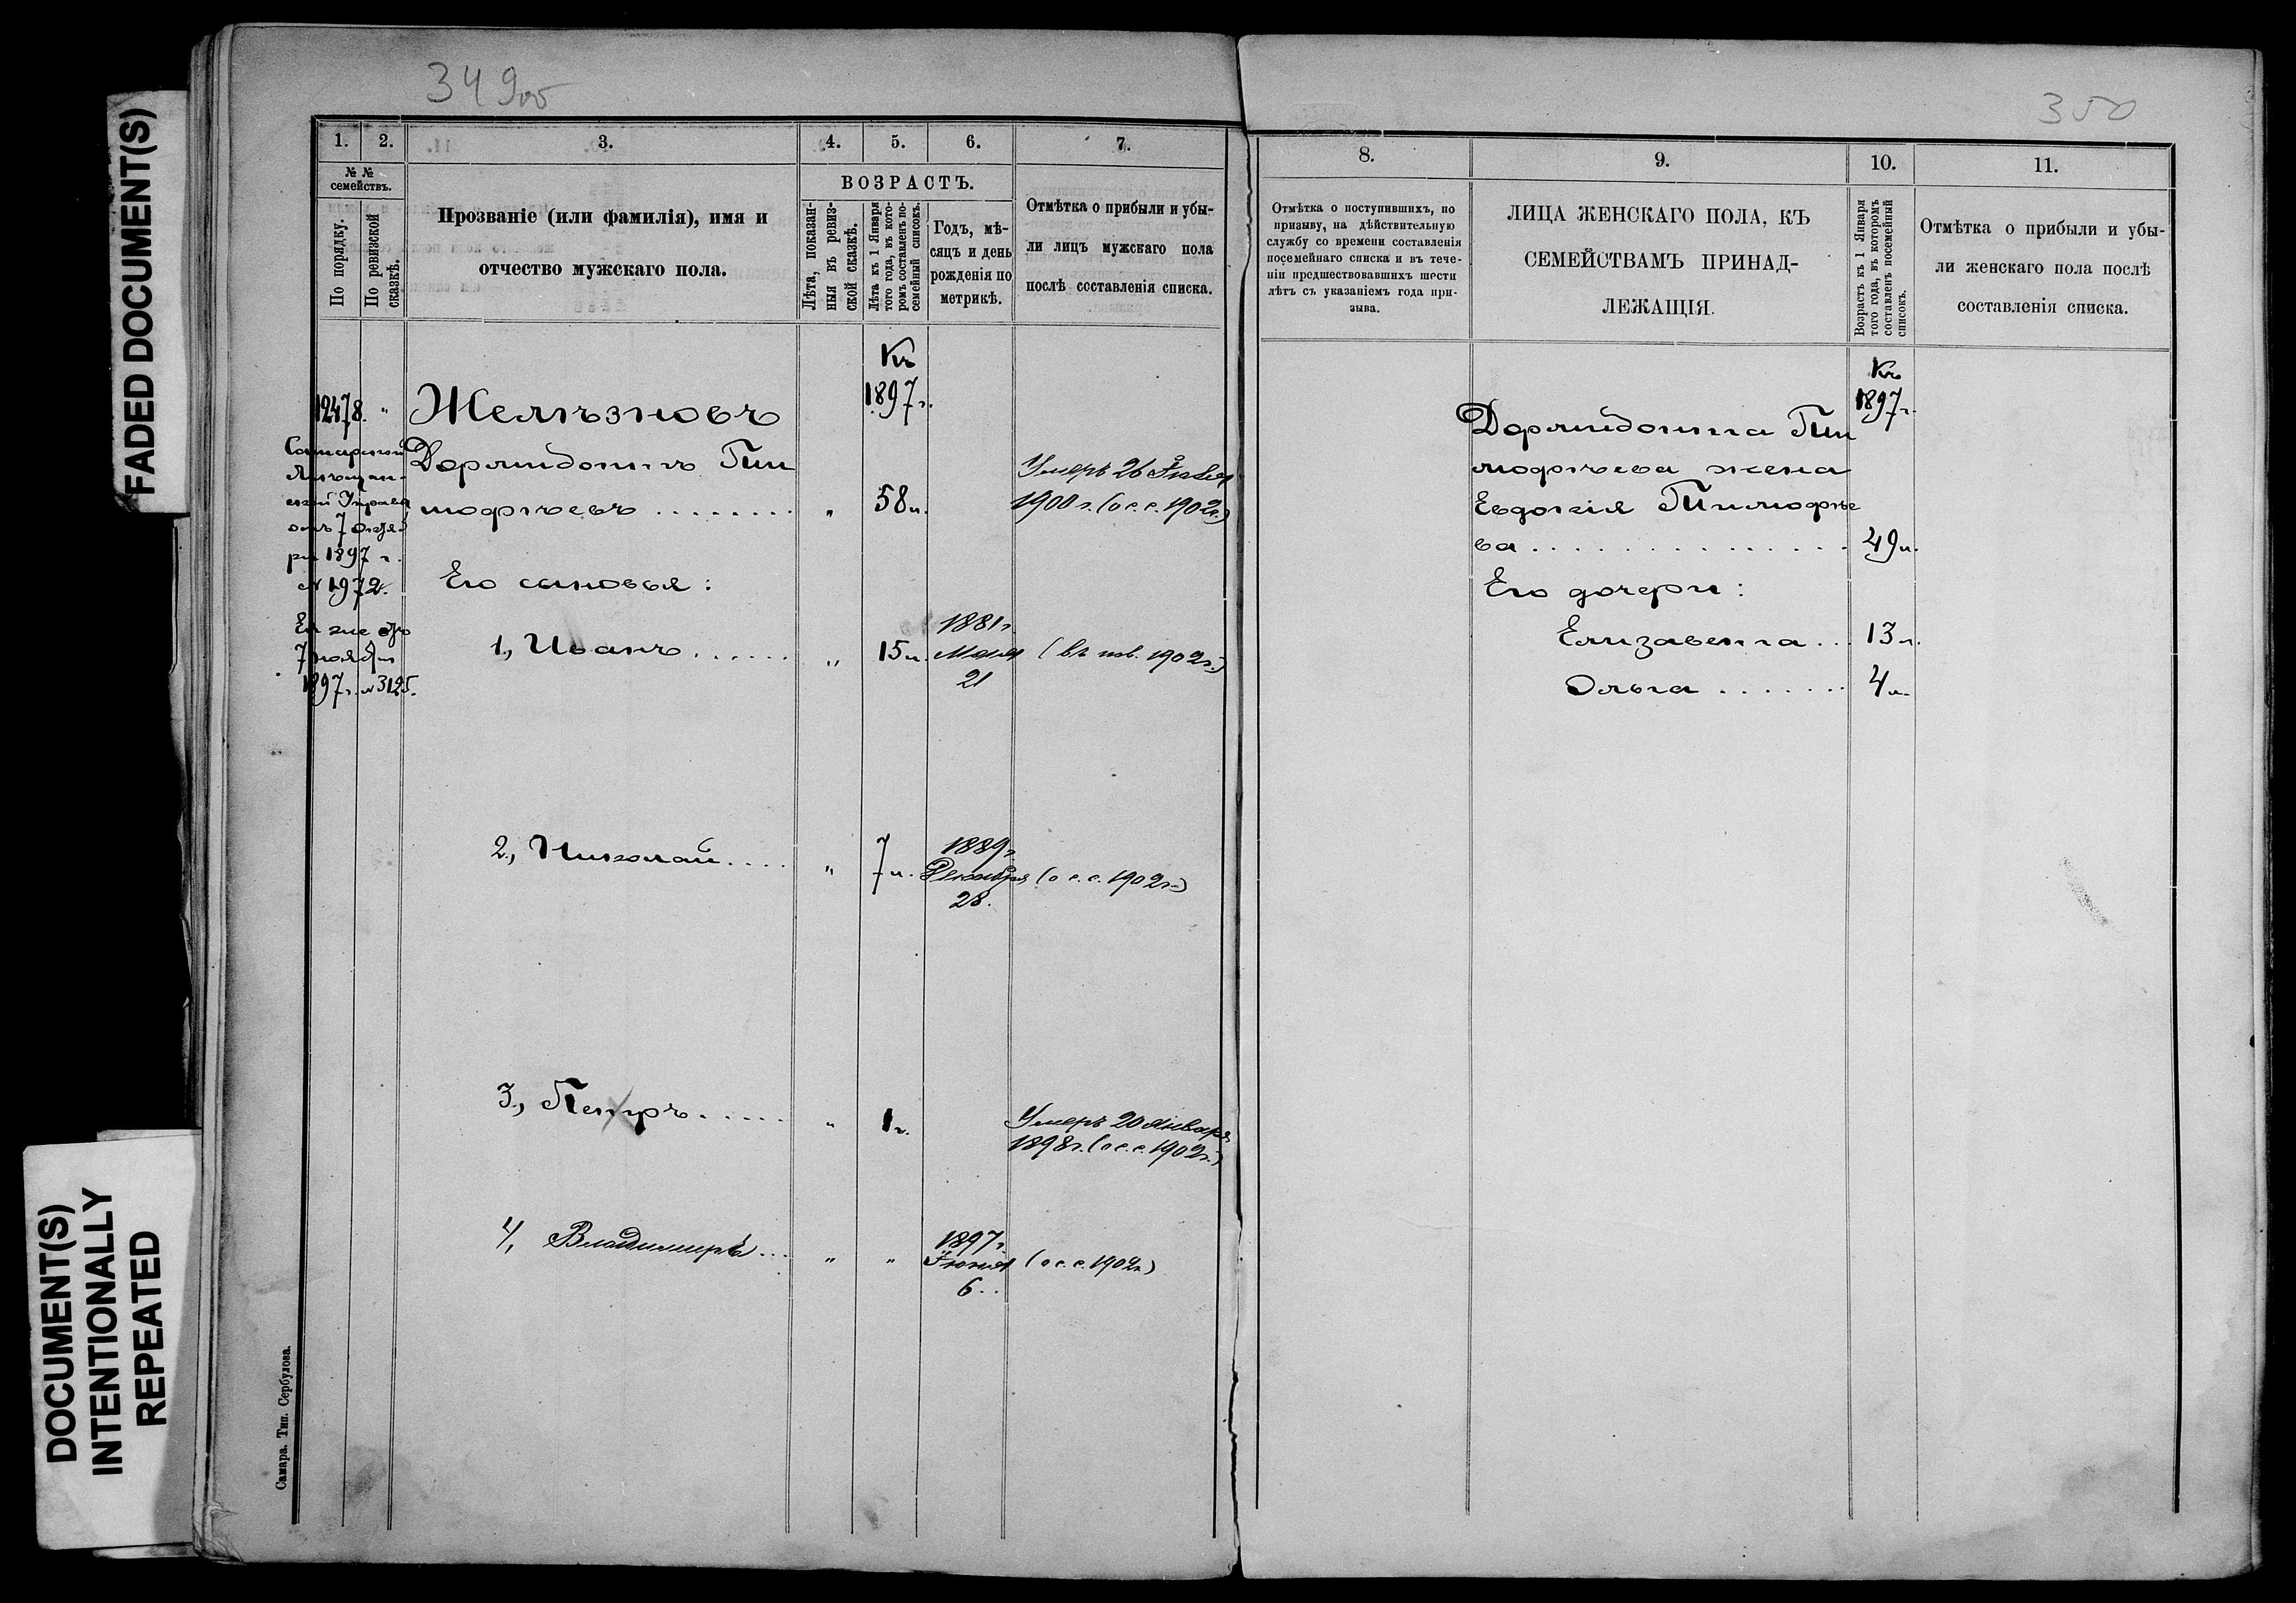 FADED DOCUMENT(S)
DOCUMENT(S)
INTENTIONALLY
REPEATED
349об
1. 2. 3. 4. 5. 6. 7.
№ №
семействъ.
По порядку.
По ревизской
сказкѣ.
Прозваніе (или фамилія), имя и
отчество мужскаго пола.
ВОЗРАСТЪ.
Лѣта, показан-
ныя въ ревиз-
ской сказкѣ.
Лѣта къ 1 Января
того года, въ кото-
ромъ составленъ по-
семейный списокъ.
Годъ, мѣ-
сяцъ и день
рожденія по
метрикѣ.
Отмѣтка о прибыли и убы-
ли лицъ мужскаго пола
послѣ составленія списка.
Къ
1897г.
12478. " Желѣзновъ
Самарской
Мѣщан-
ской Управы
отъ 7 октяб
ря 1897 г.
№ 1972.
Ея же отъ
7 ноября
1897г. № 3125.
Дормидонтъ Ти
мофѣевъ ........ " 58л.
Умеръ 26
1900 г. (о с. с. 1902г.)
Его сыновья:
1, Иванъ ...... " 15л.
1881г.
Мая
21
(въ 1902г.)
2, Николай .... " 7л.
1889г.
Декабря (о с. с. 1902г.)
28.
3, Петръ ..... " 1г.
Умеръ 20 Января
1898г. (о с. с. 1902г.)
4, Владимиръ ... " "
1897г.
Іюня (о с. с. 1902г.)
6.
Самара. Тип. Сербулова.
350
8. 9. 10. 11.
Отмѣтка о поступившихъ, по
призыву, на дѣйствительную
службу со времени составленія
посемейнаго списка и въ тече-
ніи предшествовавшихъ шести
лѣтъ съ указаніемъ года при-
зыва.
ЛИЦА ЖЕНСКАГО ПОЛА, КЪ
СЕМЕЙСТВАМЪ ПРИНАД-
ЛЕЖАЩІЯ.
Возрастъ къ 1 Января
того года, въ которомъ
составленъ посемейный
списокъ.
Отмѣтка о прибыли и убы-
ли женскаго пола послѣ
составленія списка.
Къ
1897г.
Дормидонта Ти
мофѣева жена
Евдокія Тимофѣе
ва ............... 49л.
Его дочери:
Елизавета ... 13л.
Ольга ....... 4л.